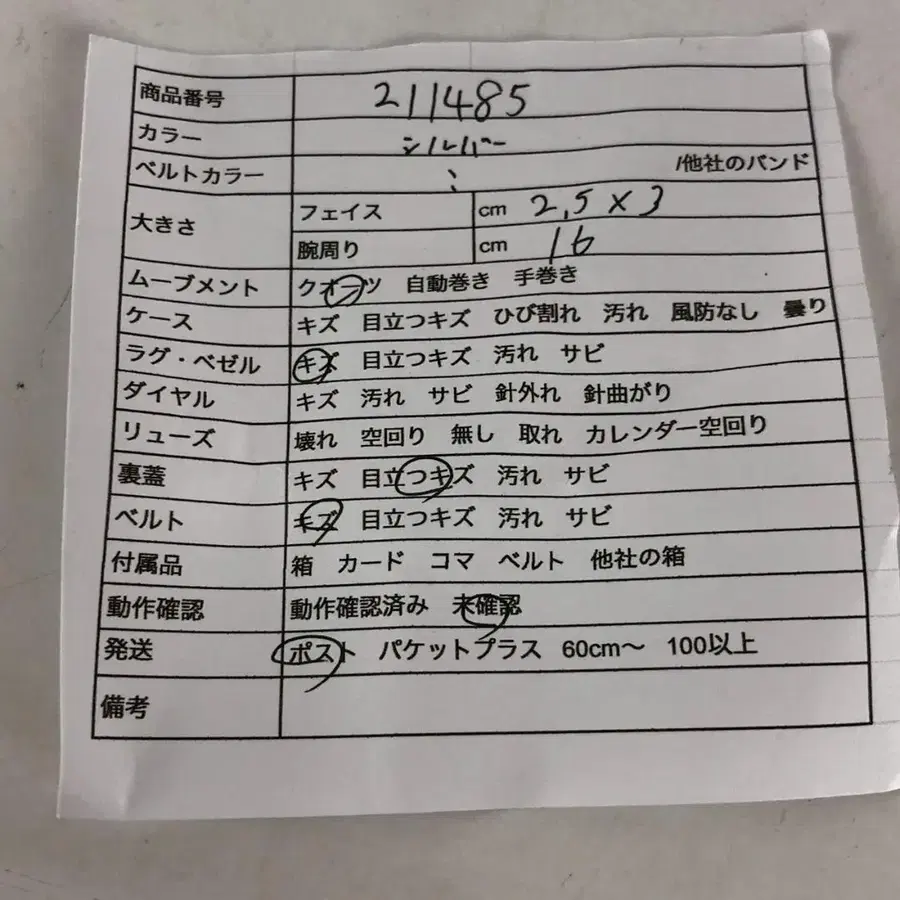 商品番号 211485
カラー シルバー
ベルトカラー 〃 /他社のバンド
大きさ フェイス cm 2,5×3
腕周り cm 16
ムーブメント クオーツ 自動巻き 手巻き
ケース キズ 目立つキズ ひび割れ 汚れ 風防なし 曇り
ラグ・ベゼル キズ 目立つキズ 汚れ サビ
ダイヤル キズ 汚れ サビ 針外れ 針曲がり
リューズ 壊れ 空回り 無し 取れ カレンダー空回り
裏蓋 キズ 目立つキズ 汚れ サビ
ベルト キズ 目立つキズ 汚れ サビ
付属品 箱 カード コマ ベルト 他社の箱
動作確認 動作確認済み 未確認
発送 ポスト パケットプラス 60cm〜 100以上
備考